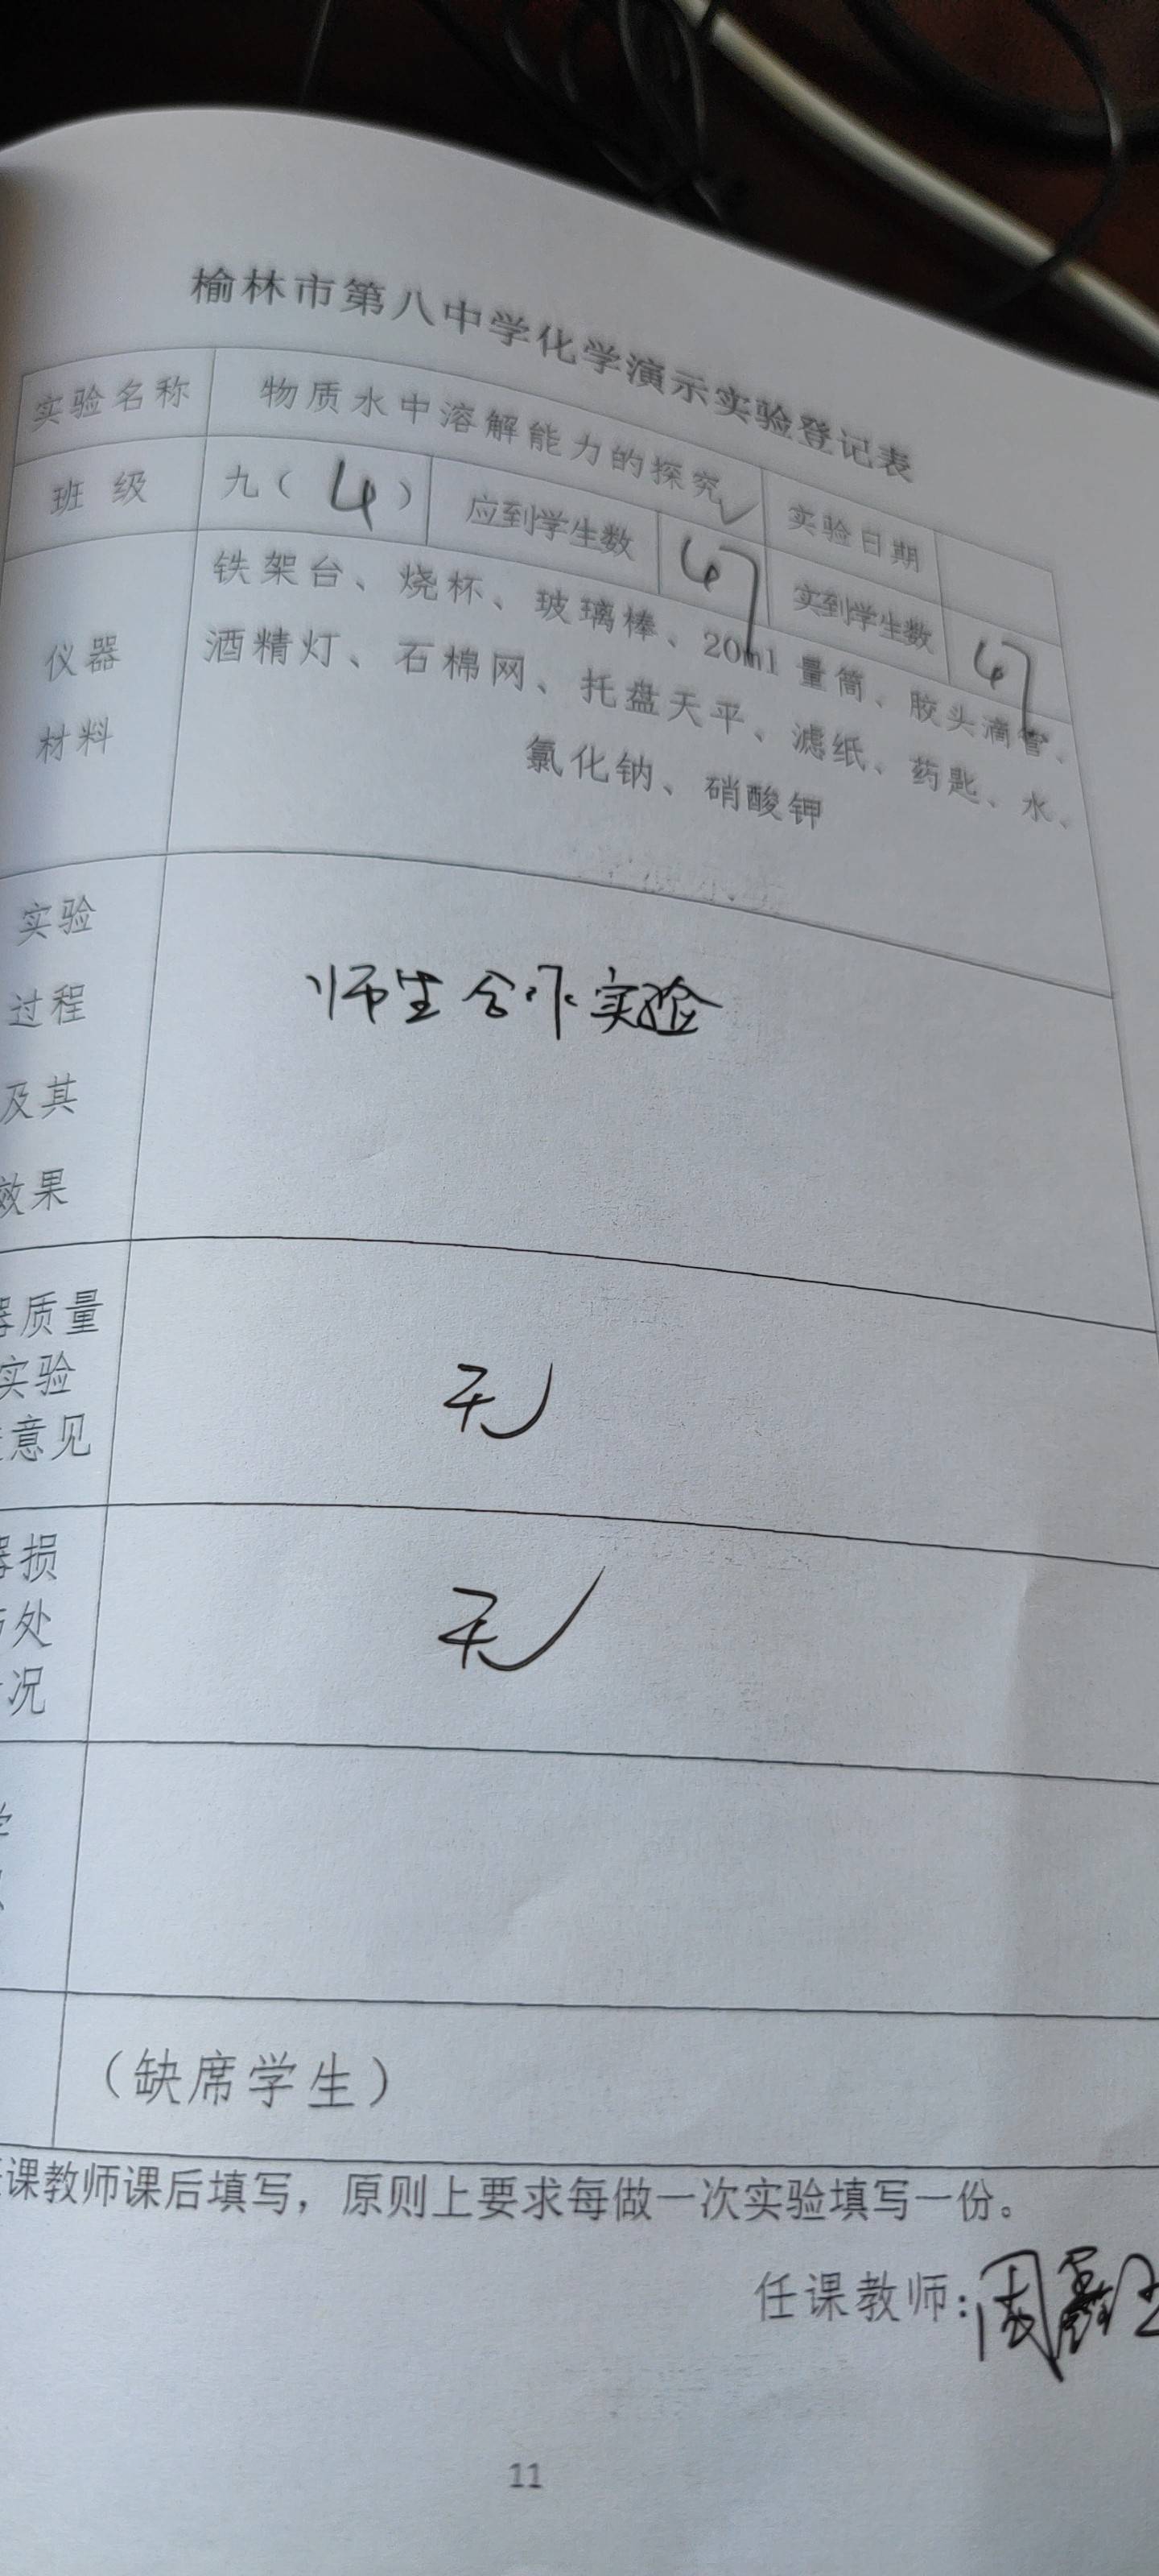 榆林市第八中学化学演示实验登记表
实验名称 物质水中溶解能力的探究 实验日期
班 级 九( 4 ) 应到学生数 67 实到学生数 67
仪器
材料
铁架台、烧杯、玻璃棒、20ml 量筒、胶头滴管、
酒精灯、石棉网、托盘天平、滤纸、药匙、水、
氯化钠、硝酸钾
实验
过程
及其
效果
师生合作实验
质量
实验
意见
无
损
处
况
无
(缺席学生)
课教师课后填写，原则上要求每做一次实验填写一份。
任课教师:周
11